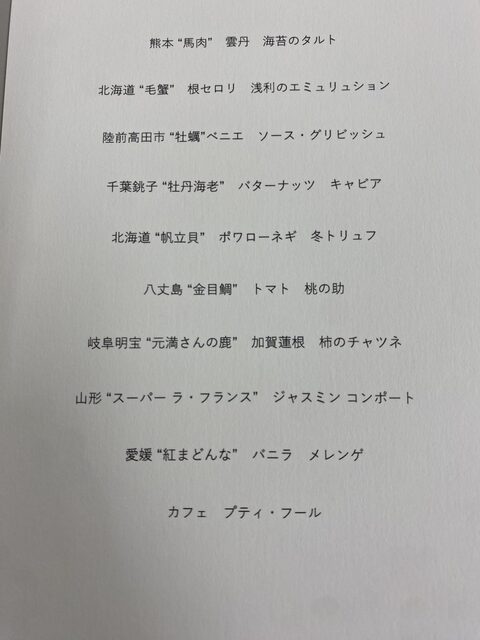 熊本 “馬肉”　雲丹　海苔のタルト
北海道 “毛蟹”　根セロリ　浅利のエミュリュション
陸前高田市 “牡蠣”ベニエ　ソース・グリビッシュ
千葉銚子 “牡丹海老”　バターナッツ　キャビア
北海道 “帆立貝”　ポワローネギ　冬トリュフ
八丈島 “金目鯛”　トマト　桃の助
岐阜明宝 “元満さんの鹿”　加賀蓮根　柿のチャツネ
山形 “スーパー ラ・フランス”　ジャスミン コンポート
愛媛 “紅まどんな”　バニラ　メレンゲ
カフェ　プティ・フール